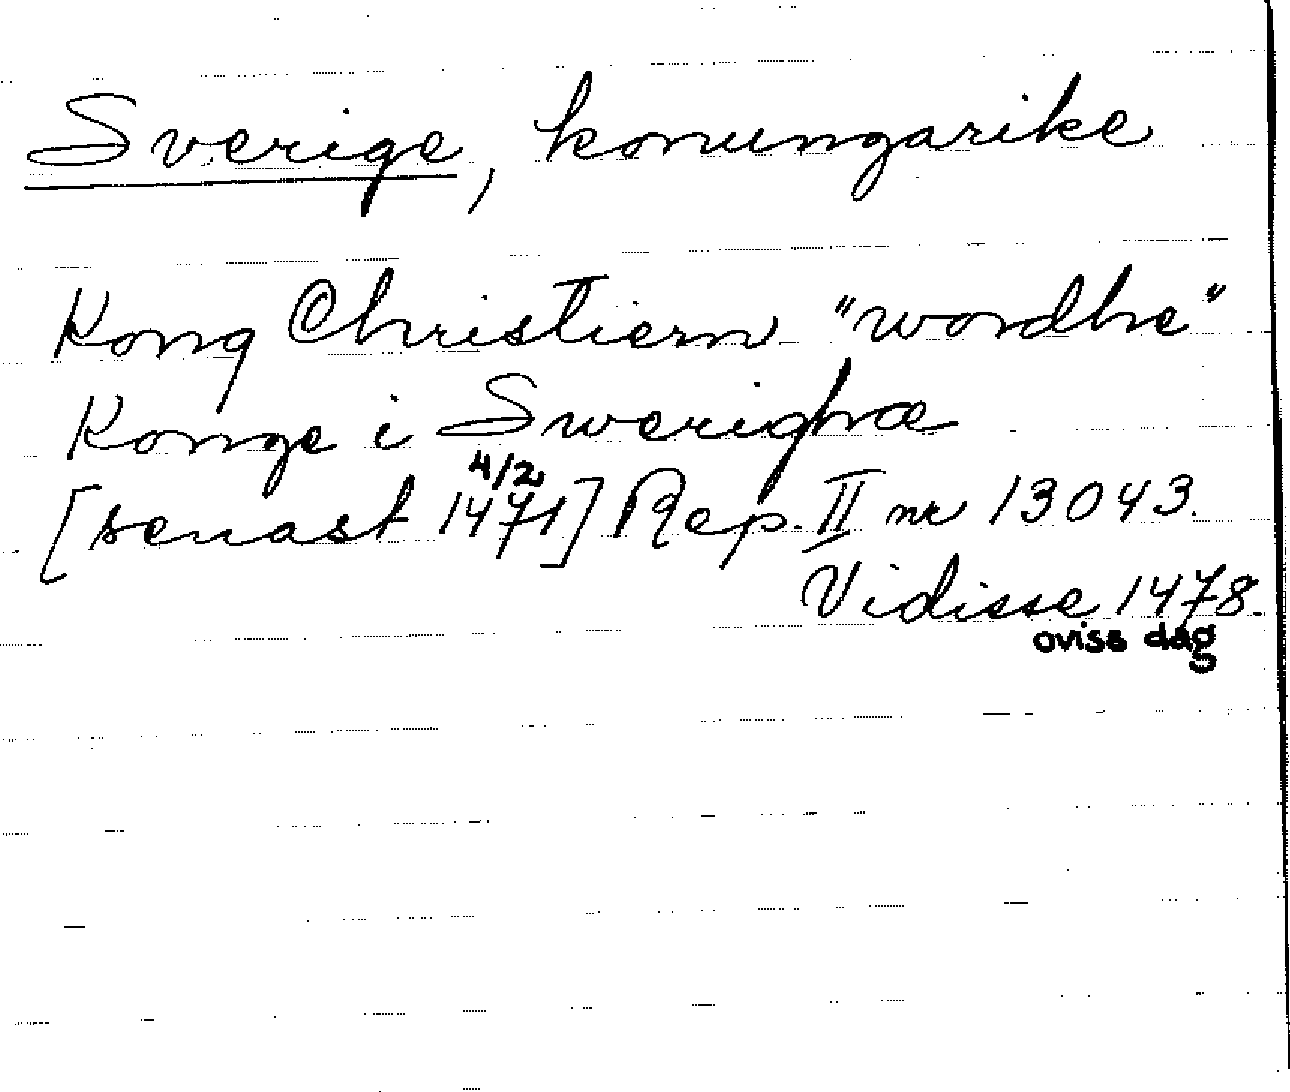 Sverige, konungarike
Kong Christiern "wordhe"
Konge i Swerighæ
[senast 4/2 1471] Rep. II nr 13043.
Vidisse 1478.
oviss dag